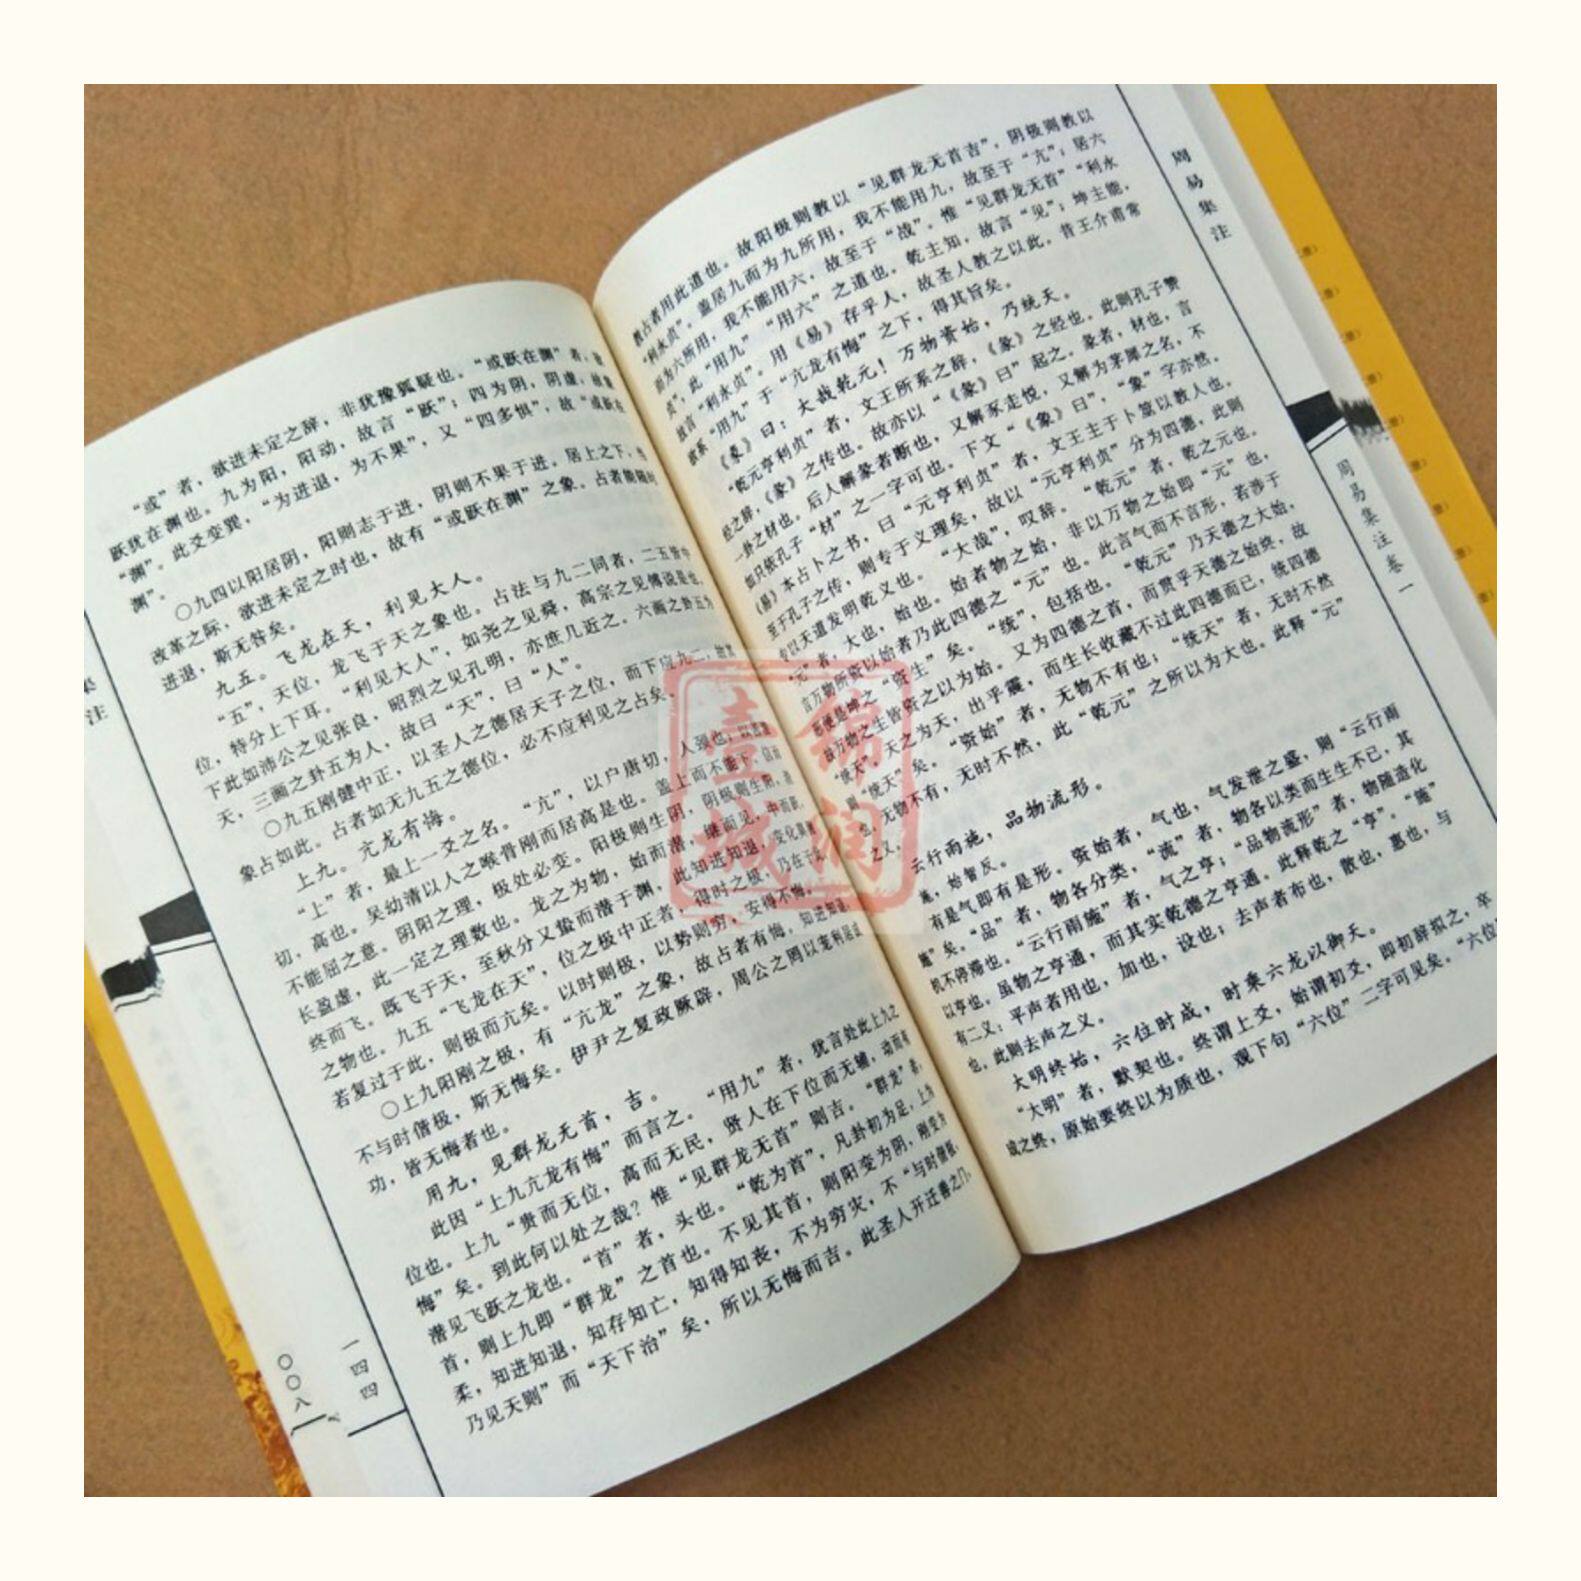 “或”者，欲进未定之辞，非犹豫狐疑也。“或跃在渊”者，
跃犹在渊也。九为阳，阳动，故言“跃”；四为阴，阴虚，故
“渊”。此爻变巽，“为进退，为不果”，又“四多惧”，故“或跃在
渊”。
〇九四以阳居阴，阳则志于进，阴则不果于进。居上之下，
改革之际，欲进未定之时也，故有“或跃在渊”之象。占者能随时
进退，斯无咎矣。
九五。飞龙在天，利见大人。
“五”，天位，龙飞于天之象也。占法与九二同者，二五皆中
位，特分上下耳。“利见大人”，如尧之见舜，高宗之见傅说是也。
下此如沛公之见张良，昭烈之见孔明，亦庶几近之。六画之卦五为
天，三画之卦五为人，故曰“天”，曰“人”。
〇九五刚健中正，以圣人之德居天子之位，而下应九二，故其
象占如此。占者如无九五之德位，必不应利见之占矣。
上九。亢龙有悔。
“上”者，最上一爻之名。“亢”，以户唐切，人颈也；
切，高也。吴幼清以人之喉骨刚而居高是也。盖上而不能下，信而
不能屈之意。阴阳之理，极处必变。阳极则生阴，阴极则生阳，消
长盈虚，此一定之理数也。龙之为物，始而潜，继而见，中而跃，
终而飞。既飞于天，至秋分又蛰而潜于渊，此知进知退，变化莫测
之物也。九五“飞龙在天”，位之极中正者，得时之极，乃在于此。
若复过于此，则极而亢矣。以时则极，以势则穷，安得不悔。
〇上九阳刚之极，有“亢龙”之象，故占者有悔。知进知退，
不与时偕极，斯无悔矣。伊尹之复政厥辟，周公之罔以宠利居成
功，皆无悔者也。
用九，见群龙无首，吉。
此因“上九亢龙有悔”而言之。“用九”者，犹言处此上九之
位也。上九“贵而无位，高而无民，贤人在下位而无辅，动而有
悔”矣。到此何以处之哉？惟“见群龙无首”则吉。“群龙”者，
潜见飞跃之龙也。“首”者，头也。“乾为首”，凡卦初为足，上为
首，则上九即“群龙”之首也。不见其首，则阳变为阴，刚变为
柔，知进知退，知存知亡，知得知丧，不为穷灾，不“与时偕极，
乃见天则”而“天下治”矣，所以无悔而吉。此圣人开迁善之门，
一四四
〇〇八
集注
教占者用此道也。故阳极则教以“见群龙无首吉”，阴极则教以
“利永贞”。盖居九而为九所用，我不能用九，故至于“亢”；居六
而为六所用，我不能用六，故至于“战”。惟“见群龙无首”“利永
贞”，此“用九”“用六”之道也。乾主知，故言“见”；坤主能，
故言“利永贞”。用《易》存乎人，故圣人教之以此。昔王介甫常
欲系“用九”于“亢龙有悔”之下，得其旨矣。
《彖》曰：大哉乾元！万物资始，乃统天。
“乾元亨利贞”者，文王所系之辞，《彖》之经也。此则孔子赞
经之辞，《彖》之传也。故亦以“《彖》曰”起之。彖者，材也，言
一卦之材也。后人解彖者断也，又解豕走悦，又解为茅犀之名，不
如只依孔子“材”之一字可也。下文“《象》曰”，“象”字亦然。
《易》本占卜之书，曰“元亨利贞”者，文王主于卜筮以教人也。
至于孔子之传，则专于义理矣，故以“元亨利贞”分为四德，此则
专以天道发明乾义也。“大哉”，叹辞。“乾元”者，乾之元也。
“元”者，大也，始也。始者物之始，非以万物之始即“元”也，
言万物所资以始者乃此四德之“元”也。此言气而不言形，若涉于
形便是坤之“资生”矣。“统”，包括也。“乾元”乃天德之大始，
故万物之生皆资之以为始。又为四德之首，而贯乎天德之始终，故
“统天”。天之为天，出乎震，而生长收藏不过此四德而已，统四德
则“统天”矣。“资始”者，无物不有也；“统天”者，无时不然
也。无物不有，无时不然，此“乾元”之所以为大也。此释“元”
之义。
云行雨施，品物流形。
施，始智反。
有是气即有是形。资始者，气也，气发泄之盛，则“云行雨
施”矣。“品”者，物各分类，“流”者，物各以类而生生不已，其
机不停滞也。“云行雨施”者，气之亨；“品物流形”者，物随造化
以亨也。虽物之亨通，而其实乾德之亨通。此释乾之“亨”。“施”
有二义：平声者用也，加也，设也；去声者布也，散也，惠也，与
也，此则去声之义。
大明终始，六位时成，时乘六龙以御天。
“大明”者，默契也。终谓上爻，始谓初爻，即初辞拟之，卒
成之终，原始要终以为质也，观下句“六位”二字可见矣。“六位
周易集注
周易集注卷一
锦润
壹城